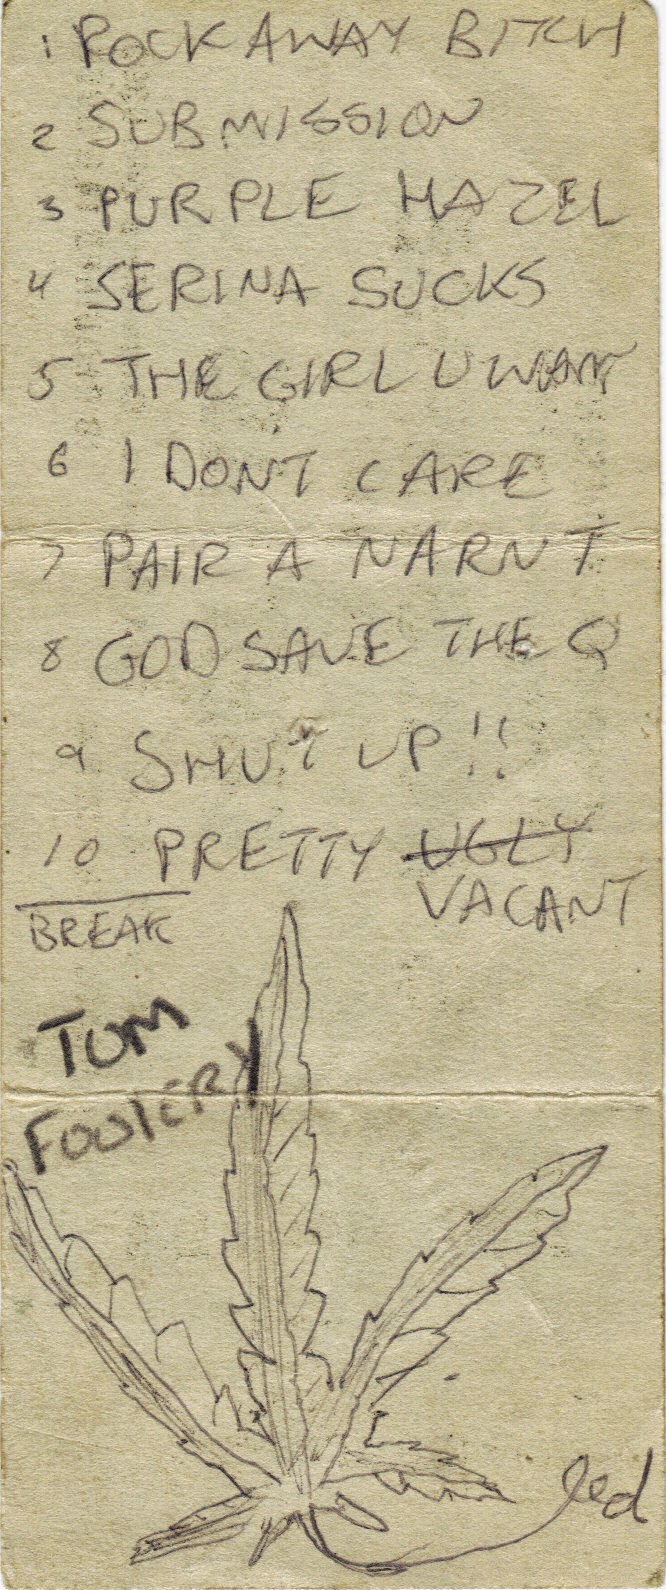 1 ROCKAWAY BITCH
2 SUBMISSION
3 PURPLE HAZEL
4 SERINA SUCKS
5 THE GIRL U WANT
6 I DONT CARE
7 PAIR A NARNT
8 GOD SAVE THE Q
9 SHUT UP!!
10 PRETTY UGLY
VACANT
BREAK
TOM
FOOlERY